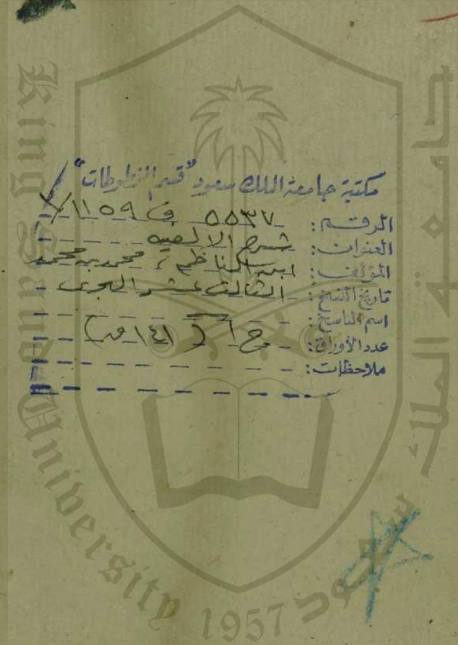 مكتبة جامعة الملك سعود "قسم المخطوطات"
الرقم: ٥٥٣٧ ف ١١٥٩/٧
العنوان: شرح الالفيه
المؤلف: ابن الناظم، محمد بن محمد
تاريخ النسخ: الثالث عشر الهجرى
اسم الناسخ:
عدد الأوراق: ج ١ (١٤١ ص)
ملاحظات:
King Saud University
1957
جامعة الملك سعود